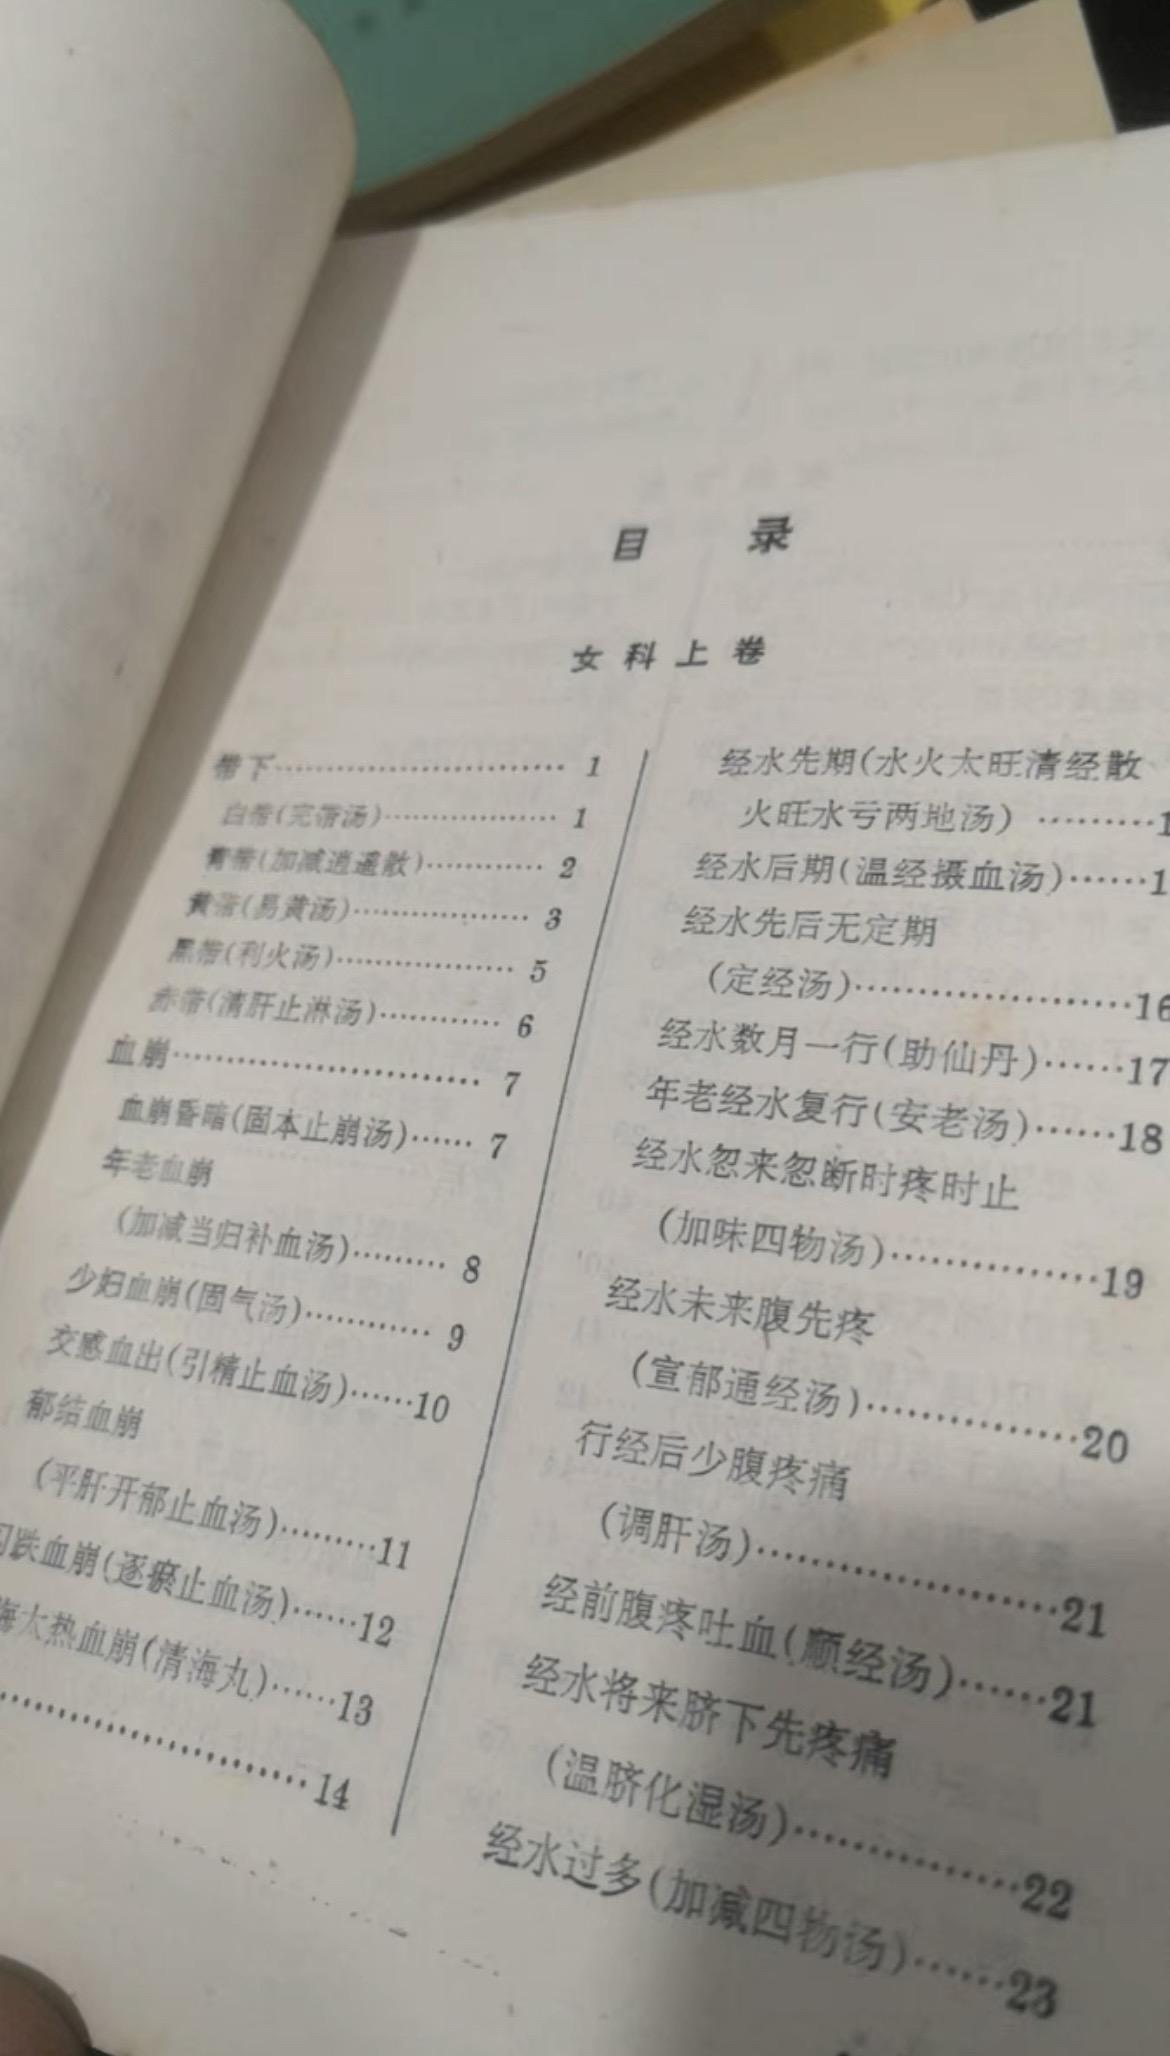 目 录
女科上卷
带下…………………………1
白带(完带汤)………………1
青带(加减逍遥散)…………2
黄带(易黄汤)………………3
黑带(利火汤)………………5
赤带(清肝止淋汤)…………6
血崩…………………………7
血崩昏暗(固本止崩汤)……7
年老血崩
(加减当归补血汤)………8
少妇血崩(固气汤)…………9
交感血出(引精止血汤)……10
郁结血崩
(平肝开郁止血汤)………11
跌血崩(逐瘀止血汤)……12
海太热血崩(清海丸)……13
…………………………14
经水先期(水火太旺清经散
火旺水亏两地汤) ………1
经水后期(温经摄血汤)……1
经水先后无定期
(定经汤)…………………16
经水数月一行(助仙丹)……17
年老经水复行(安老汤)……18
经水忽来忽断时疼时止
(加味四物汤)……………19
经水未来腹先疼
(宣郁通经汤)……………20
行经后少腹疼痛
(调肝汤)…………………21
经前腹疼吐血(顺经汤)……21
经水将来脐下先疼痛
(温脐化湿汤)……………22
经水过多(加减四物汤)……23